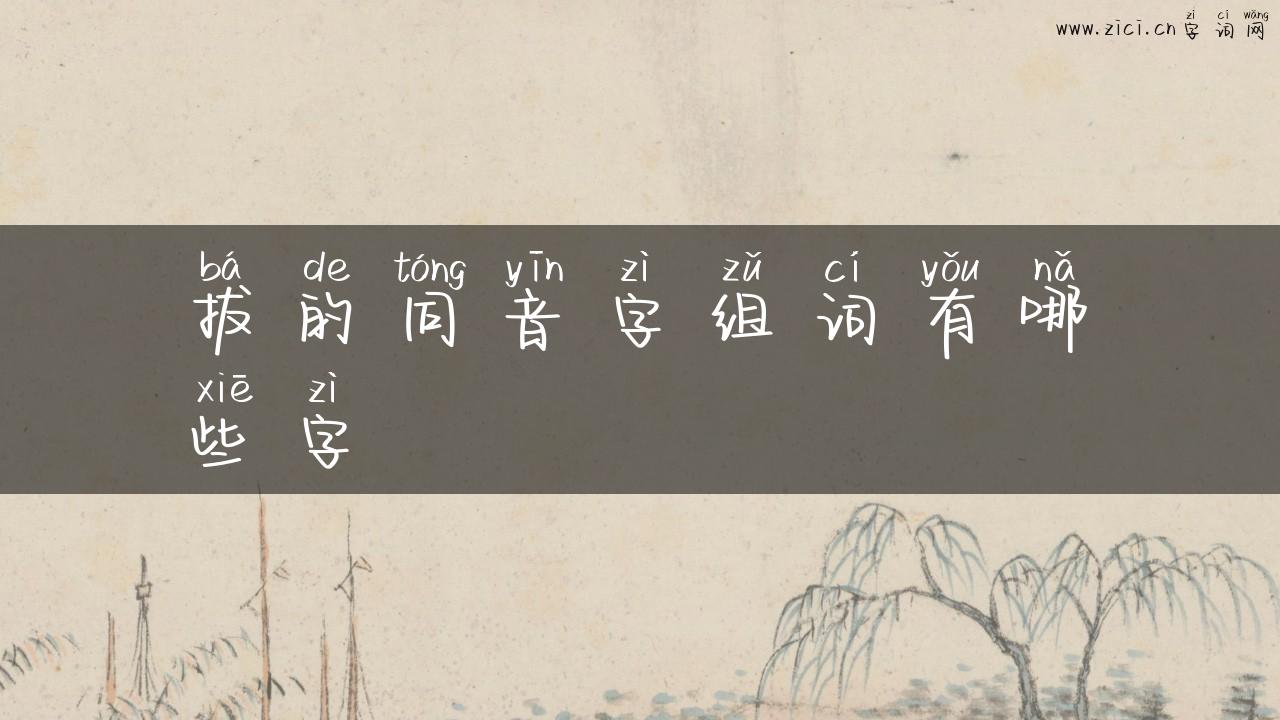 zì cí wǎng
www.zici.cn字词网
bá de tóng yīn zì zǔ cí yǒu nǎ
拔的同音字组词有哪
xiē zì
些字